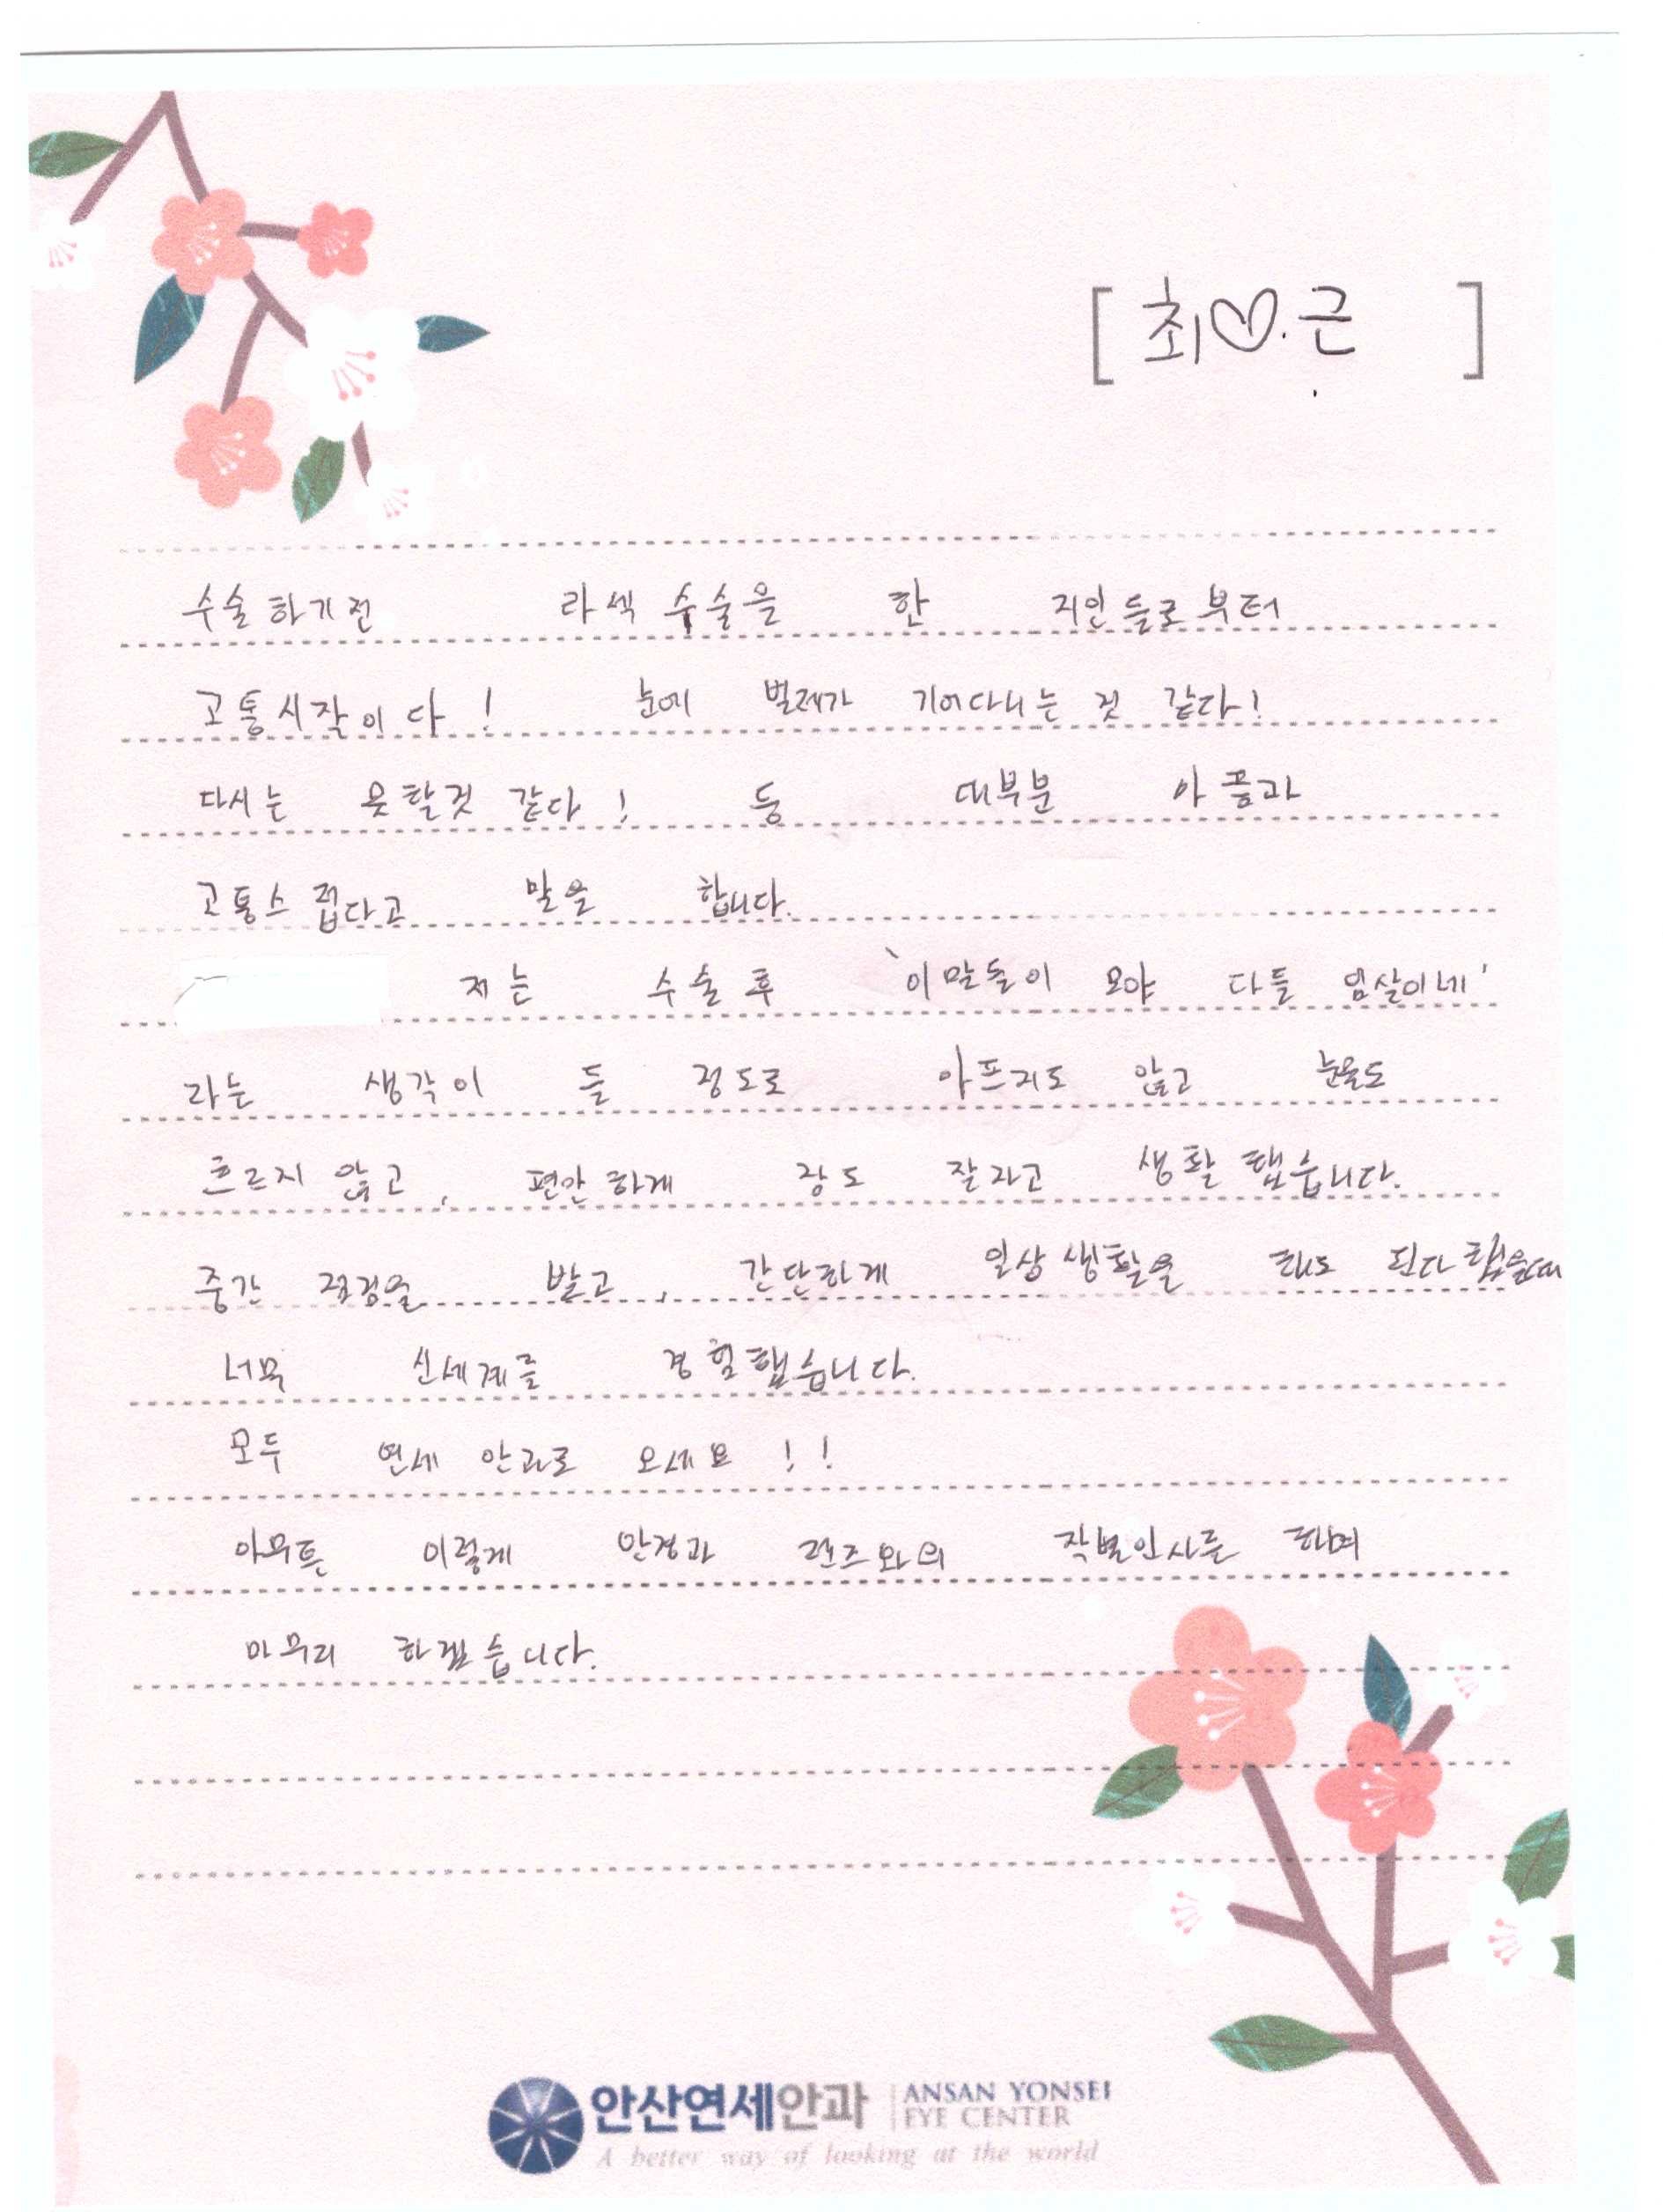 [ 최♡.근 ]
수술하기전 라섹 수술을 한 지인들로부터
고통시작이다! 눈에 벌레가 기어다니는 것 같다!
다시는 못할것 같다! 등 대부분 아픔과
고통스럽다고 말을 합니다.
저는 수술후 '이말들이 모야 다들 엄살이네'
라는 생각이 들 정도로 아프지도 않고 눈물도
흐르지 않고, 편안하게 잠도 잘자고 생활했습니다.
중간 점검을 받고, 간단하게 일상생활을 해도 된다했을때
너무 신세계를 경험했습니다.
모두 연세 안과로 오세요!!
아무튼 이렇게 안경과 렌즈와의 작별인사를 하며
마무리 하겠습니다.
안산연세안과 ANSAN YONSEI
EYE CENTER
A better way of looking at the world